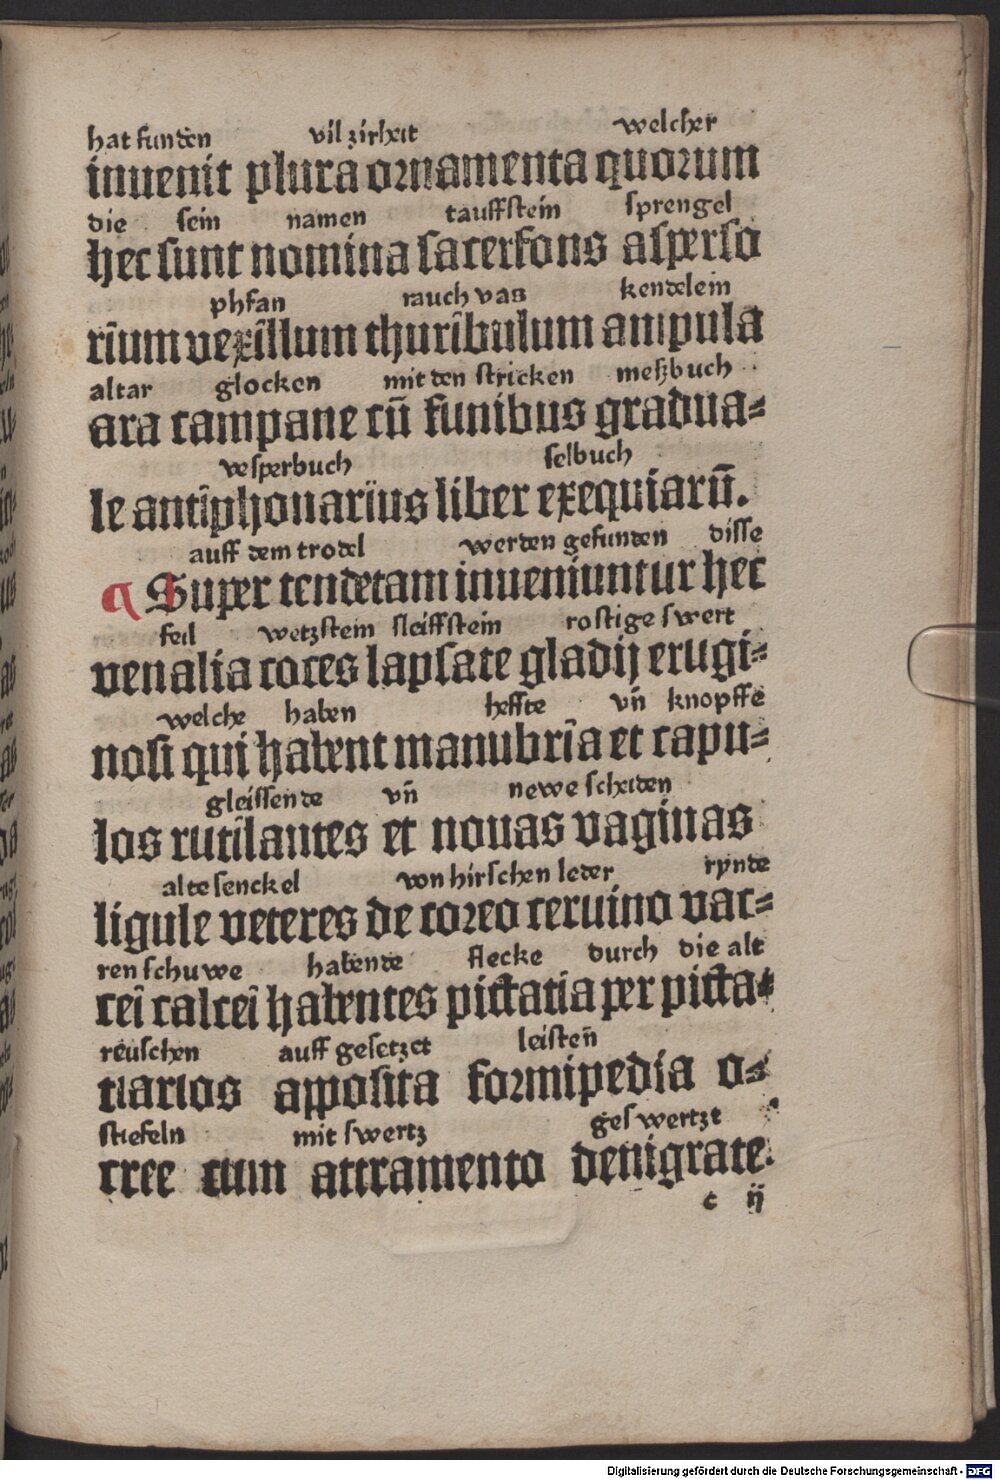 hat funden vil zirheit welcher
inuenit plura ornamenta quorum
die sein namen tauffstein sprengel
hec sunt nomina sacerfons asperso
phfan rauch vas kendelein
rium vexillum thuribulum ampula
altar glocken mit den stricken meßbuch
ara campane cū funibus gradua⸗
vesperbuch selbuch
le antiphonarius liber exequiarū.
auff dem trodel werden gefunden disse
¶ Super tendetam inueniuntur hec
feil wetzstein sleiffstein rostige swert
venalia cotes lapsate gladij erugi⸗
welche haben heffte vn̄ knopffe
nosi qui habent manubria et capu⸗
gleissende vn̄ newe scheiden
los rutilantes et nouas vaginas
alte senckel von hirschen leder rynde
ligule veteres de coreo ceruino vac⸗
ren schuwe habende flecke durch die alt
cei calcei habentes pictatia per picta⸗
reuschen auff gesetzet leisten̄
tiarios apposita formipedia o⸗
stiefeln mit swertz geswertzt
cree cum attramento denigrate.
c ij
Digitalisierung gefördert durch die Deutsche Forschungsgemeinschaft - DFG